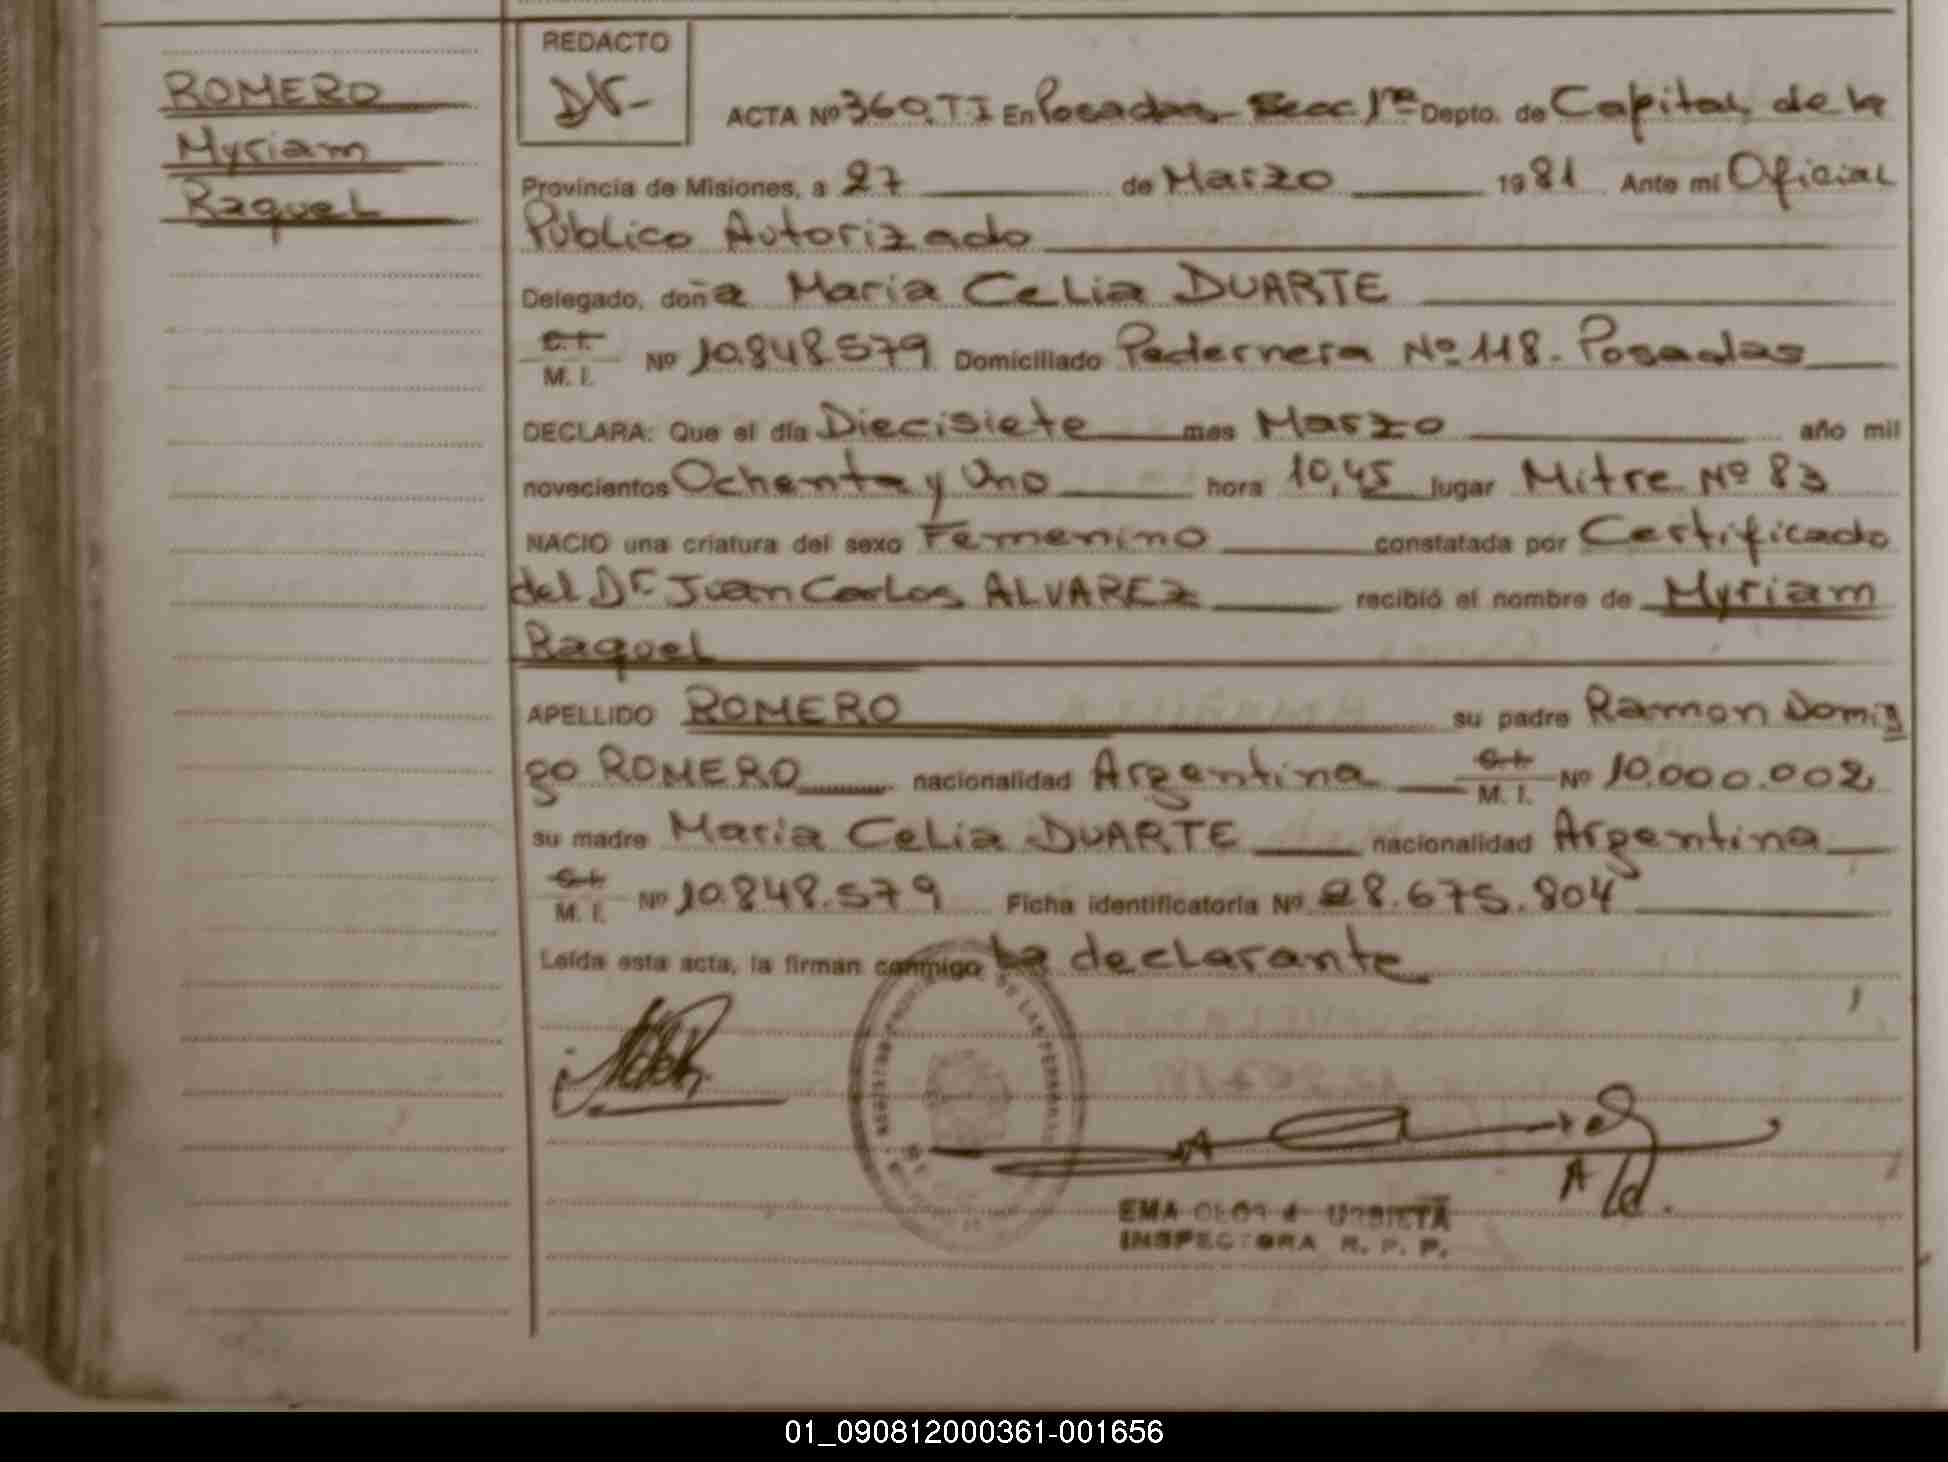 ROMERO
Myriam
Raquel
REDACTO
ACTA Nº 360.TI En Posadas Secc 1ra Depto. de Capital, de la
Provincia de Misiones, a 27 de Marzo 1981 Ante mi Oficial
Público Autorizado
Delegado, doña Maria Celia DUARTE
C.I.
M. I. Nº 10.848.579 Domiciliado Pedernera Nº 118. Posadas
DECLARA: Que el día Diecisiete mes Marzo año mil
novecientos Ochenta y Uno hora 10,45 lugar Mitre Nº 83
NACIO una criatura del sexo Femenino constatada por Certificado
del Dr. Juan Carlos ALVAREZ recibió el nombre de Myriam
Raquel
APELLIDO ROMERO su padre Ramon Domin
go ROMERO nacionalidad Argentina C.I.
M. I. Nº 10.000.002
su madre Maria Celia DUARTE nacionalidad Argentina
C.I.
M. I. Nº 10.848.579 Ficha identificatoria Nº 28.675.804
Leída esta acta, la firman conmigo la declarante
REGISTRO PROVINCIAL DE LAS PERSONAS
EMA URBIETA
INSPECTORA R. P. P.
01_090812000361-001656